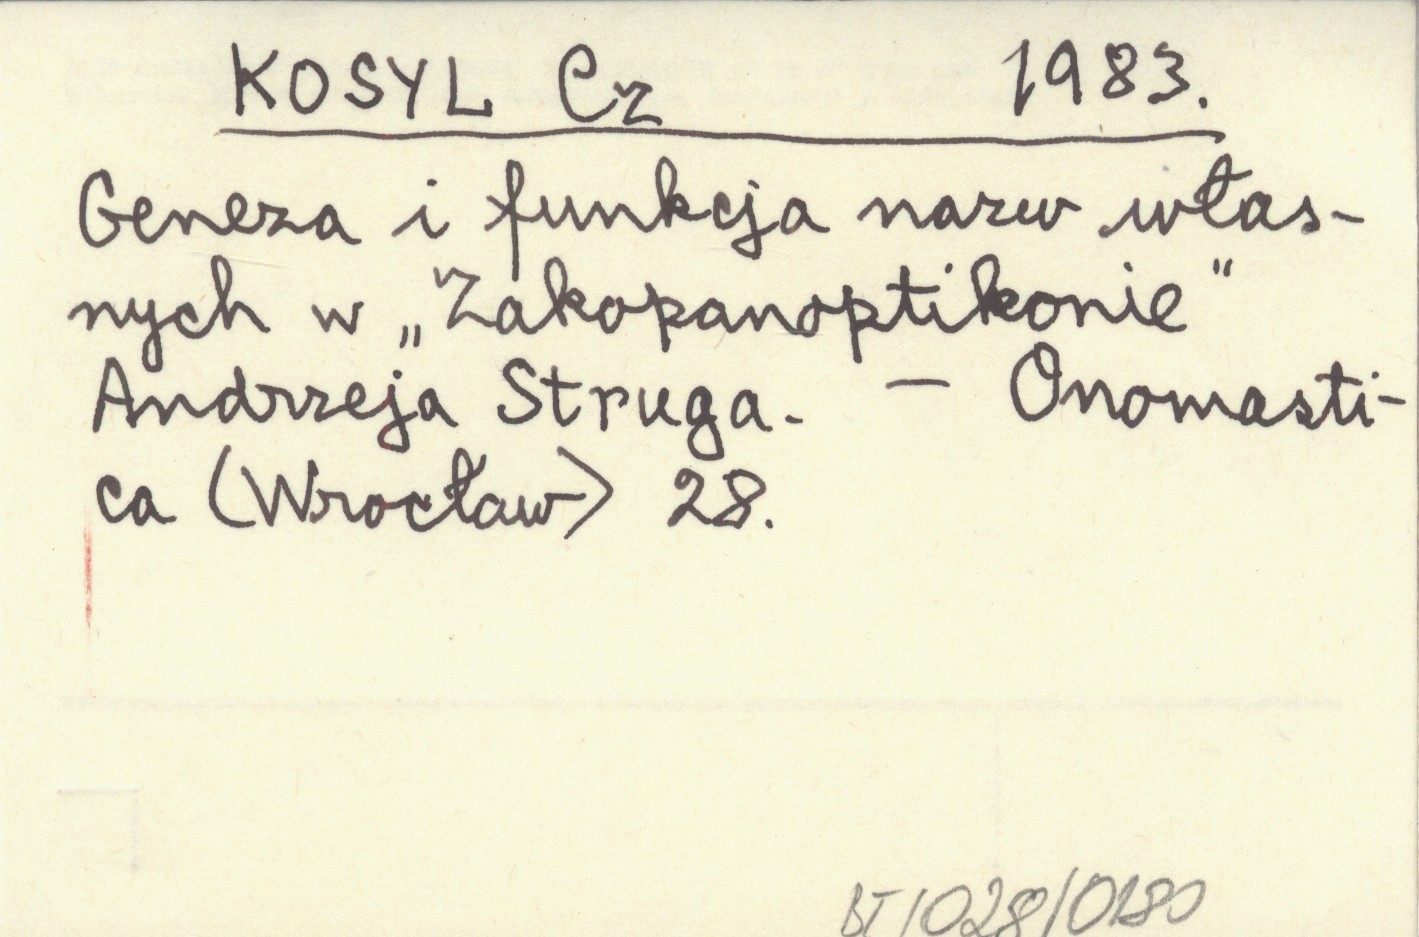 KOSYL Cz 1983.
Geneza i funkcja nazw włas-
nych w „Zakopanoptikonie"
Andrzeja Struga. — Onomasti-
ca (Wrocław) 28.
BT/028/0180